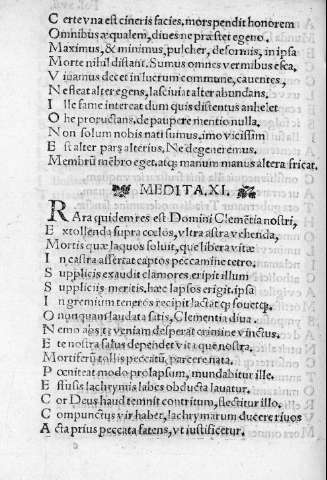 Certe vna est cineris facies, mors pendit honorem
Omnibus æqualem, diues ne præstet egeno.
Maximus, & minimus, pulcher, deformis, in ipsa
Morte nihil distant. Sumus omnes vermibus esca.
Viuamus decet in lucrum commune, cauentes,
Ne fleat alter egens, lasciuiat alter abundans.
Ille fame intereat dum quis distentus anhelet
Ohe pro custans, de paupere mentio nulla.
Non solum nobis nati sumus, imo vicissim
Est alter pars alterius, Ne degeneremus.
Membrũ mẽbro eget, atq; manum manus altera fricat.
MEDITA. XI.
RAra quidem res est Domini Clemẽtia nostri,
Extollenda supra cœlos, vltra astra vehenda,
Mortis quæ laquos soluit, quæ libera vitæ
In castra assertat captos peccamine tetro,
Supplicis exaudit clamores, eripit illum
Suppliciis meritis, hæc lapsos erigit, ipsa
In gremium teneros recipit lactatq; fouetq;.
O nunquam laudata satis, Clementia diua.
Nemo abs te veniam desperat crimine vinctus.
Ex te nostra salus dependet vita que nostra.
Mortiferũ tollis peccatũ, parcere nata.
Pœniteat modo prolapsum, mundabitur ille.
Effusis lachrymis labes obducta lauatur.
Cor Deus haud temnit contritum, flectitur illo.
Compunctus vir habet, lachrymarum ducere riuos
Acta prius peccata fatens, vt iustificetur.